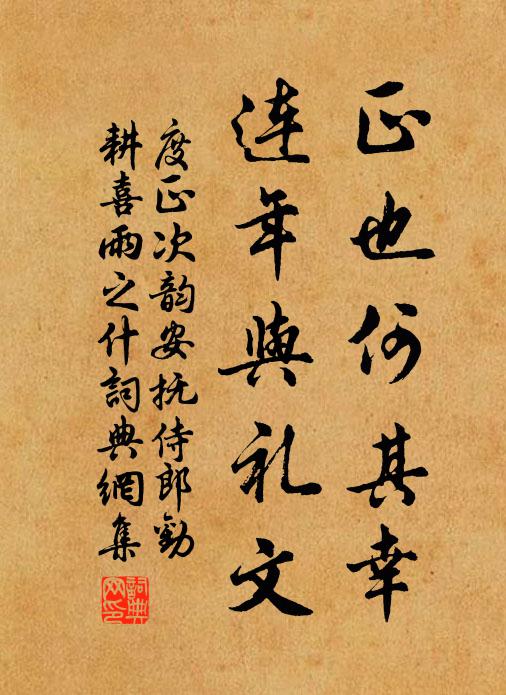 正也何其幸
連年與礼文
度正次韵安抚侍郎勸
耕喜雨之什詞典網集
詞典
网印